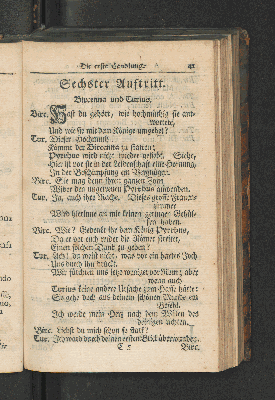 Die erste Handlung.
41
Sechster Auftritt.
Bircenna und Turius.
Birc. Hast du gehört, wie hochmüthig sie ant-
wortete,
Und wie sie mit dem Könige umgehet?
Tur. Dieser Hochmuth
Kömmt der Bircenna zu statten;
Pyrrhus wird nicht wieder geliebt. Siehe,
Hier ist vor sie in der Leidenschaft eine Hoffnung,
In der Beschimpfung ein Vergnügen.
Birc. Sie mag denn ihren ganzen Zorn
Wider den ungetreuen Pyrrhus anwenden.
Tur. Ja, auch ihre Rache. Dieses große
Wird hierinne an mir keinen geringen Gehül-
fen haben.
Birc. Wie? Gedenkt ihr dem König Pyrrhus,
Da er gar nicht wider die Römer streitet,
Einen solchen Dank zu geben?
Tur. Ach! du weist nicht, was ein hartes Joch
Uns durch ihn drückt.
Wir fürchten uns jetzt weniger vor Rom; aber
wenn auch
Turius keine andere Ursache zum Hasse hätte:
So gehe doch aus deinem schönen Munde ein
Befehl.
Ich weihe mein Herz nach dem Willen des
deinigen
Birc. Liebst du mich schon so stark?
Tur. Ich ward durch deinen ersten Blick überwunden.
C 5
Birc.